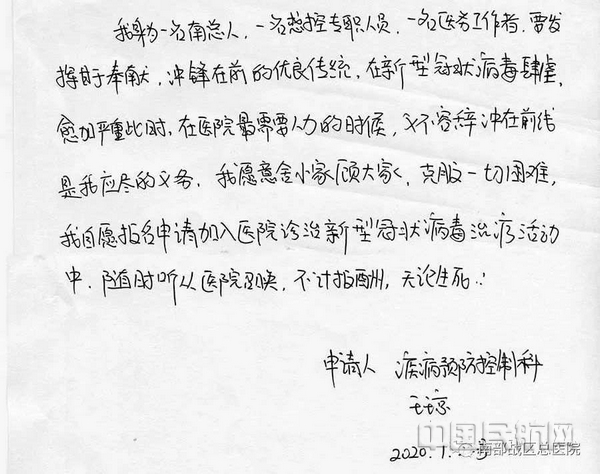 我身为一名南总人，一名感控专职人员，一名医务工作者，要发
挥甘于奉献，冲锋在前的优良传统，在新型冠状病毒肆虐，
愈加严重此时，在医院最需要人力的时候，义不容辞冲在前线
是我应尽的义务，我愿意舍小家顾大家，克服一切困难，
我自愿报名申请加入医院诊治新型冠状病毒治疗活动
中，随时听从医院召唤，不计报酬，无论生死！
申请人 疾病预防控制科
2020.1.
中国导航网
南部战区总医院